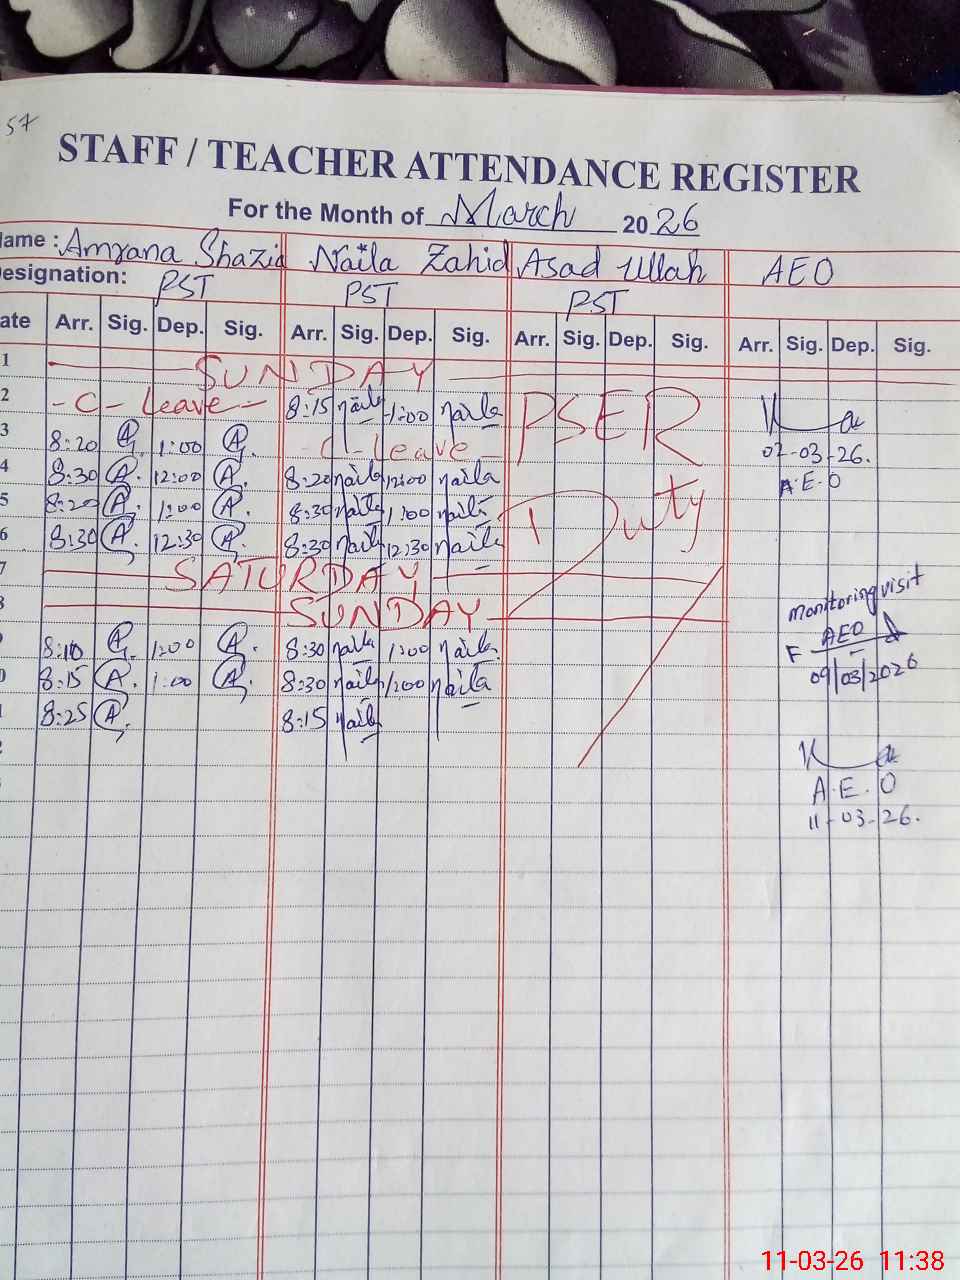 57
STAFF / TEACHER ATTENDANCE REGISTER
For the Month of March 2026
Name : Amrana Shazia Naila Zahid Asad Ullah AEO
Designation: PST PST PST
Date Arr. Sig. Dep. Sig. Arr. Sig. Dep. Sig. Arr. Sig. Dep. Sig. Arr. Sig. Dep. Sig.
1 SUNDAY
2 - C - Leave - 8:15 naila 1:00 naila PSER
3 8:20 A 1:00 A - C - Leave - 02-03-26.
4 8:30 A 12:00 A 8:20 naila 12:00 naila A.E.O
5 8:20 A 1:00 A 8:30 naila 1:00 naila Duty
6 8:30 A 12:30 A 8:30 naila 12:30 naila
7 SATURDAY
8 SUNDAY monitoring visit
9 8:10 A 1:00 A 8:30 naila 1:00 naila AEO
F
10 8:15 A 1:00 A 8:30 naila 1:00 naila 09/03/2026
11 8:25 A 8:15 naila
2
A.E.O
11-03-26.
11-03-26 11:38